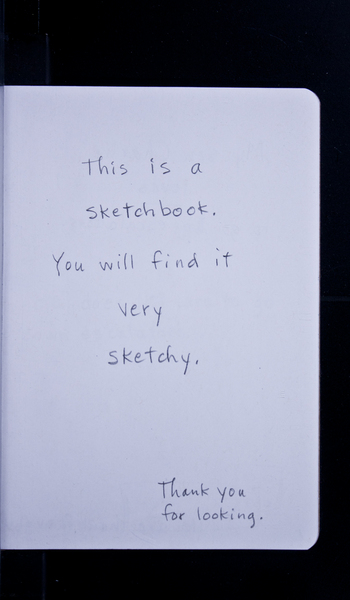 This is a
sketchbook.
You will find it
very
sketchy.
Thank you
for looking.